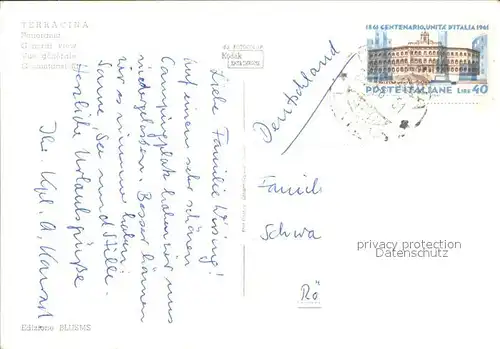 TERRACINA
Panorama
General view
Vue générale
Edizione BLUEMS
Kodak
Liebe Familie
Auf einem sehr schönen
Campingplatz haben wir uns
niedergelassen. Besser können
wir es nimmer haben:
Sonne, See und Stille.
Herzliche Urlaubsgrüße
Ihr Kpl. A.
1861 CENTENARIO UNITÀ D'ITALIA 1961
POSTE ITALIANE LIRE 40
Deutschland
Famili
Schwa
privacy protection
Datenschutz